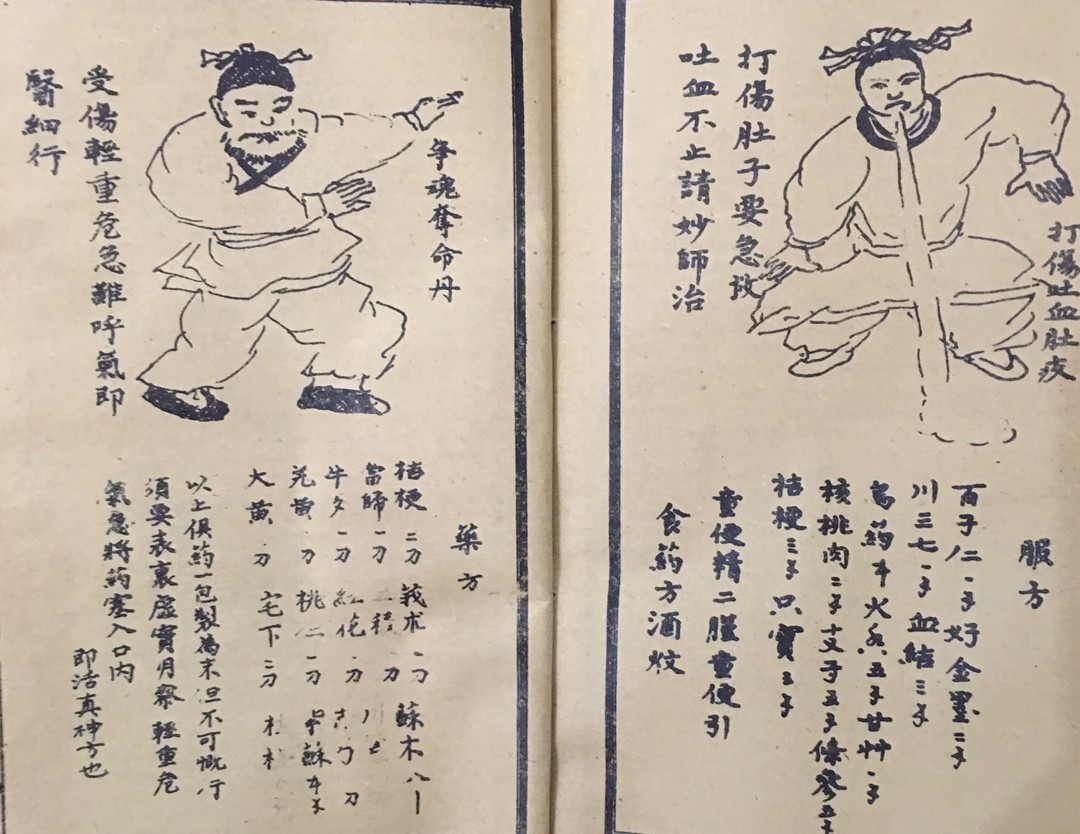 打傷吐血肚疼
打傷肚子要急救
吐血不止請妙師治
服方
百子仁一子好金墨二子
川三七一子血結三子
烏葯牛火 五子甘艸一子
核桃肉二子支子五子條參五子
桔梗三子只實五子
童便精二服童便引
食葯方酒炆
爭魂奪命丹
受傷輕重危急難呼氣即
醫細行
藥方
桔梗二刀莪术一刀蘇木八
當師一刀三稜刀川
牛夕一刀紅花刀赤勺刀
芫黄刀桃仁一刀 蘇
大黄刀
以上俱葯一包製為末但不可慨行
須要表裏虛實明察輕重危
氣急將葯塞入口內
即活真神方也